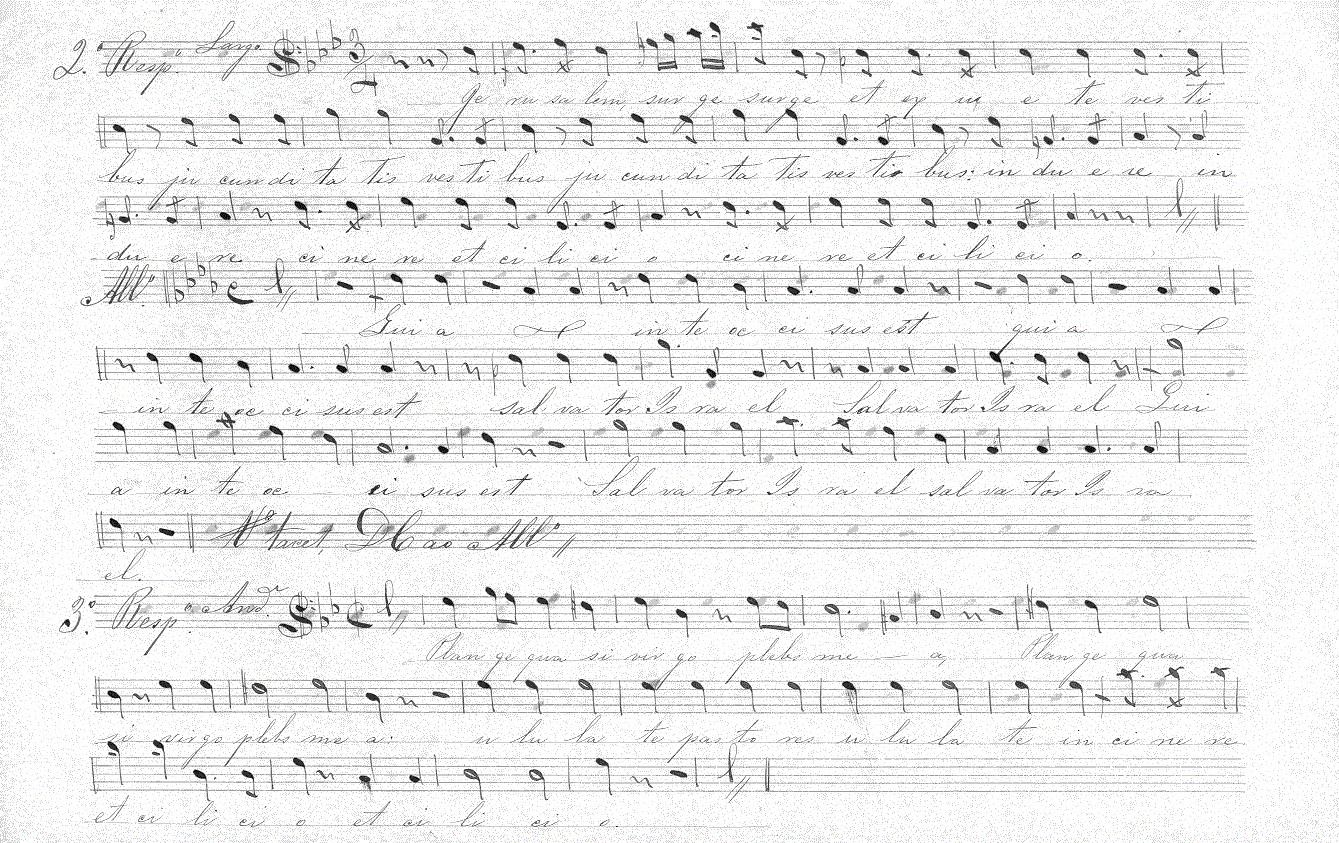 2.º Resp.º Largo
Ge ru sa lem, sur ge surge et ex u e te ves ti
bus ju cun di ta tis ves ti bus ju cun di ta tis ves tio bus: in du e re in
du e re ci ne re et ci li ci o ci ne re et ci li ci o.
All.º
Qui a in te oc ci sus est qui a
in te oc ci sus est sal va tor Is ra el Sal va tor Is ra el Qui
a in te oc ci sus est Sal va tor Is ra el sal va tor Is ra
tacet, DC ao All.º
el.
3.º Resp.º And.
Plan ge qua si vir go plebs me a, Plan ge qua
si virgo plebs me a: u lu la te pas to res u lu la te in ci ne re
et ci li ci o et ci li ci o.